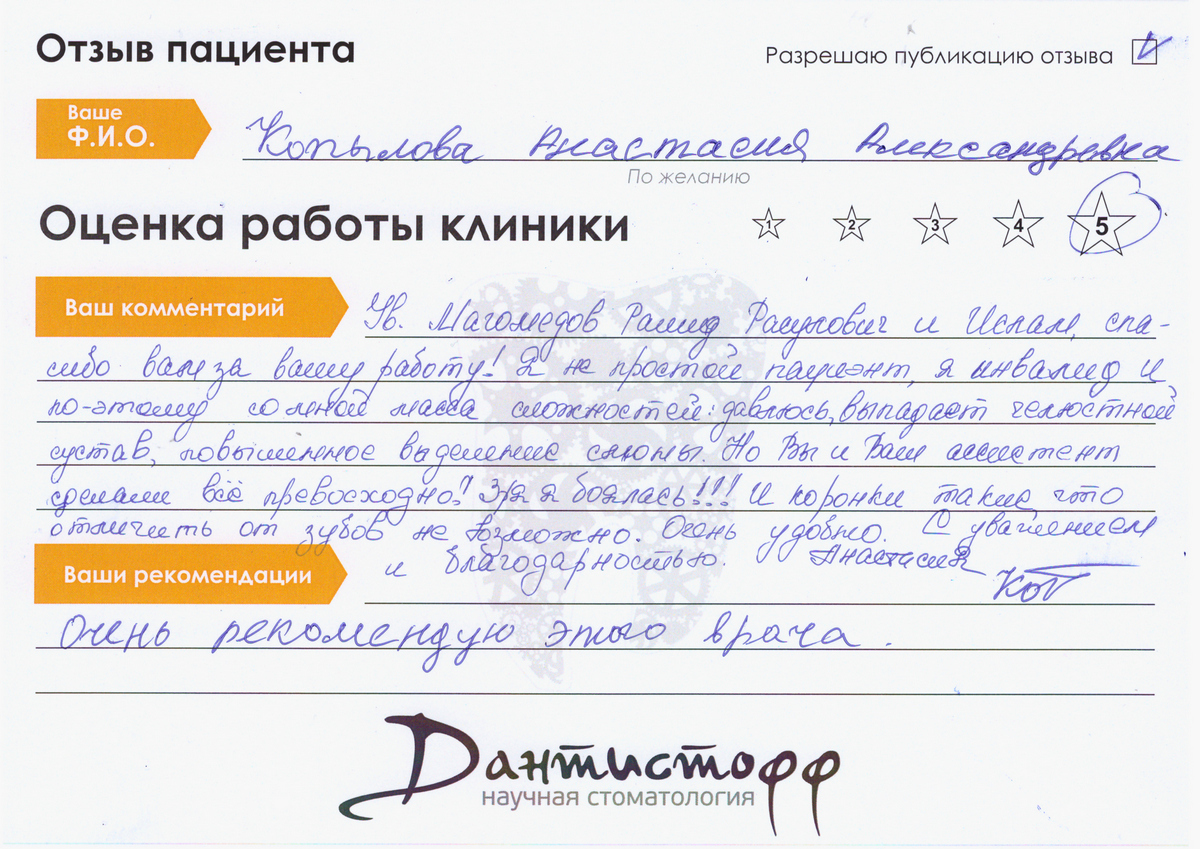 Отзыв пациента
Разрешаю публикацию отзыва
Ваше
Ф.И.О.
Копылова Анастасия Александровна
По желанию
Оценка работы клиники
1 2 3 4 5
Ваш комментарий
Ув. Магомедов Рашид Расулович и Ислам, спа-
сибо вам за вашу работу! Я не простой пациэнт, я инвалид и
по-этому со мной масса сложностей: давлюсь, выпадает челюстной
сустав, повышенное выделение слюны. Но Вы и Ваш ассистент
сделали всё превосходно! Зря я боялась!!! И коронки такие что
отличить от зубов не возможно. Очень удобно. С уважением
и благодарностью. Анастасия
Ваши рекомендации
Коп
Очень рекомендую этого врача.
Дантистофф
научная стоматология